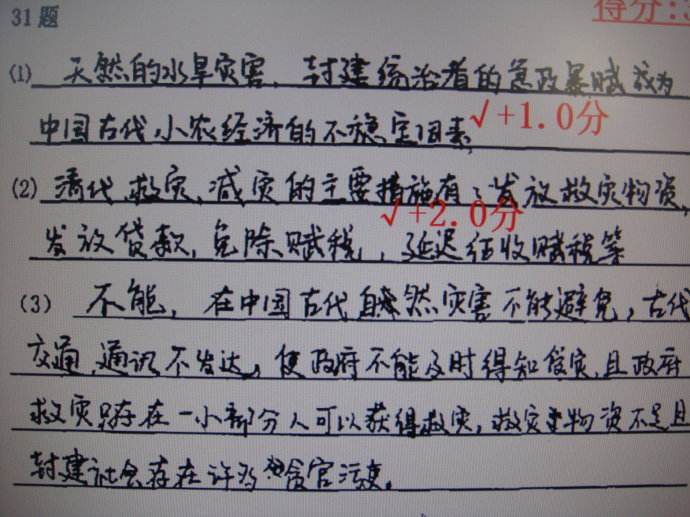 31题
得分:
(1) 天然的水旱灾害,封建统治者的急政暴赋成为
中国古代小农经济的不稳定因素
√+1.0分
(2) 清代救灾、减灾的主要措施有:发放救灾物资,
√+2.0分
发放贷款,免除赋税,延迟征收赋税等
(3) 不能,在中国古代自然灾害不能避免,古代
交通、通讯不发达,使政府不能及时得知受灾,且政府
救灾只存在一小部分人可以获得救灾,救灾物资不足且
封建社会存在许多贪官污吏。